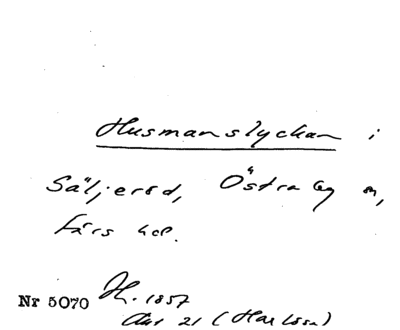 Husmanslyckan i
Säljeröd, Östraby sn,
Färs hd.
Nr 5070 H. 1857
21 (Harlösa)